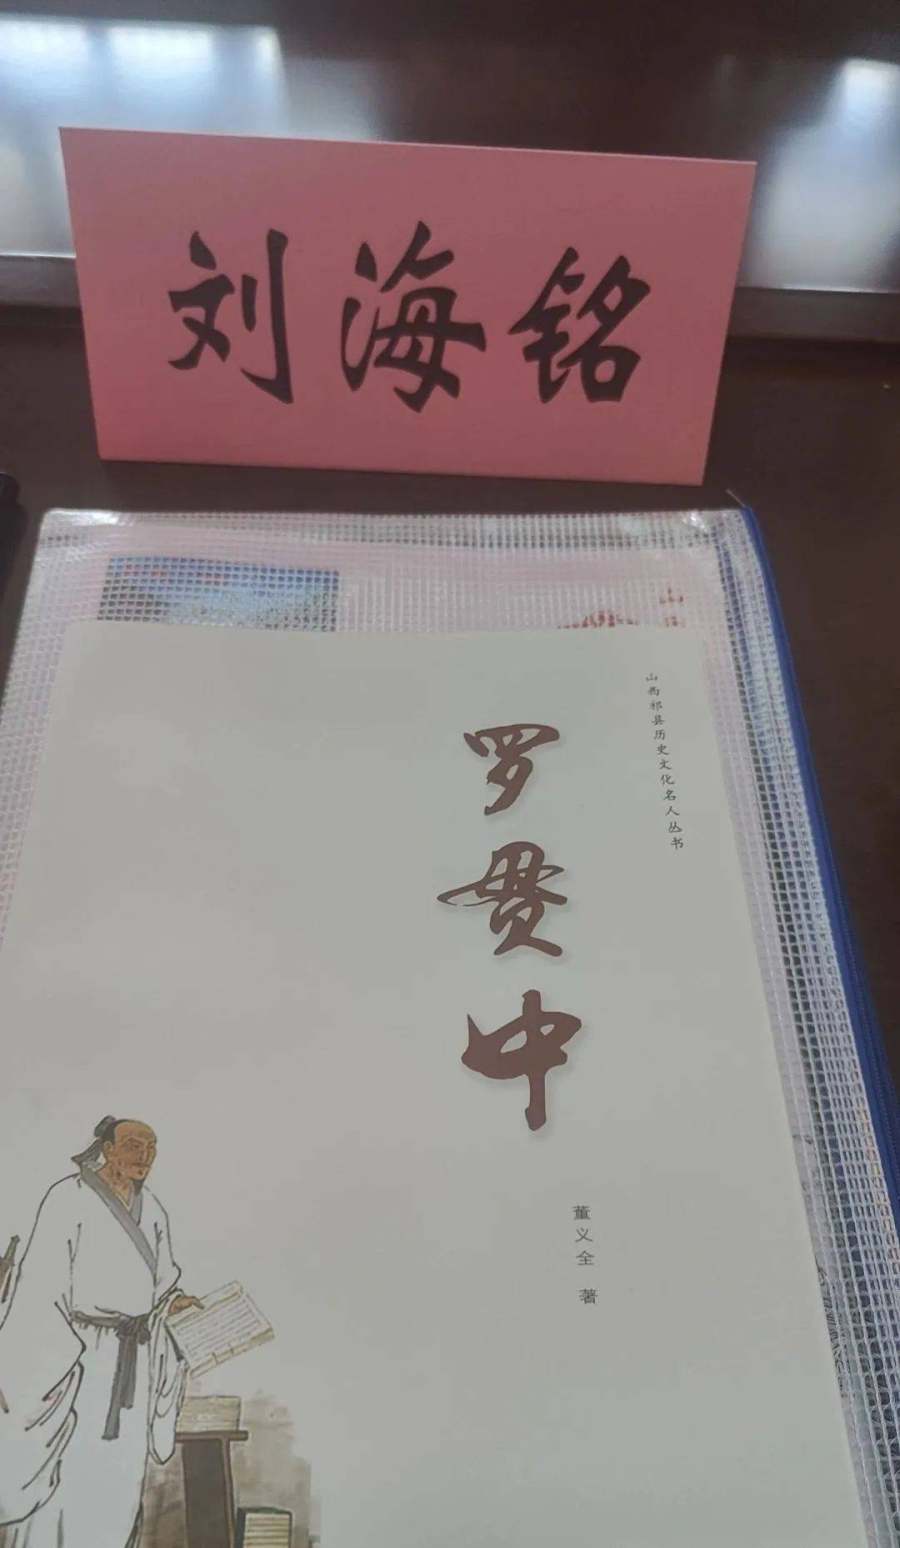 刘海铭
山西祁县历史文化名人丛书
罗贯中
董义全 著